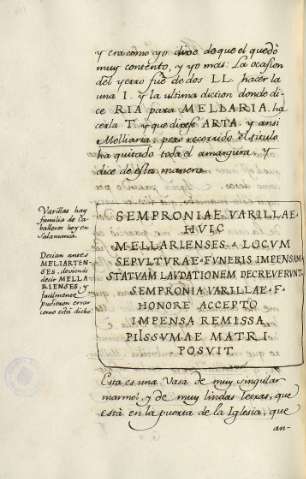 y era como yo dixe de que el quedó
muy contento, y yo mas. La ocasion
del yerro fue de dos LL hacer la
una I. y la ultima diction donde di-
ce RIA para MELLARIA. ha
cerla T. y que dixese ARTA. y ansi
Melliarta, pero recorrido el titulo
ha quitado toda el amargura, y
dice de esta manera.
Varillas hay
familia de Ca-
balleros hoy en
Salamanca
Decian antes
MELIARTEN-
SES, deviendo
decir MELLA
RIENSES, y
facilmente
pudieron errar
como está dicho
SEMPRONIAE. VARILLAE.
HVIC
MELLARIENSES. LOCVM
SEPVLTVRAE. FVNERIS IMPENSAM
STATVAM LAVDATIONEM DECREVERVNT.
SEMPRONIA. VARILLAE. F.
HONORE ACCEPTO
IMPENSA REMISSA
PIISSVMAE MATRI
POSVIT.
Esta es una Vasa de muy singular
marmol, y de muy lindas letras, que
está en la puerta de la Iglesia, que
an-